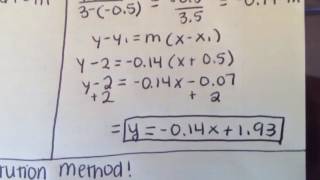 3-(-0.5) 3.5
y-y₁ = m(x-x₁)
y-2 = -0.14(x+0.5)
y-2 = -0.14x-0.07
+2 + 2
= y = -0.14x+1.93
method!